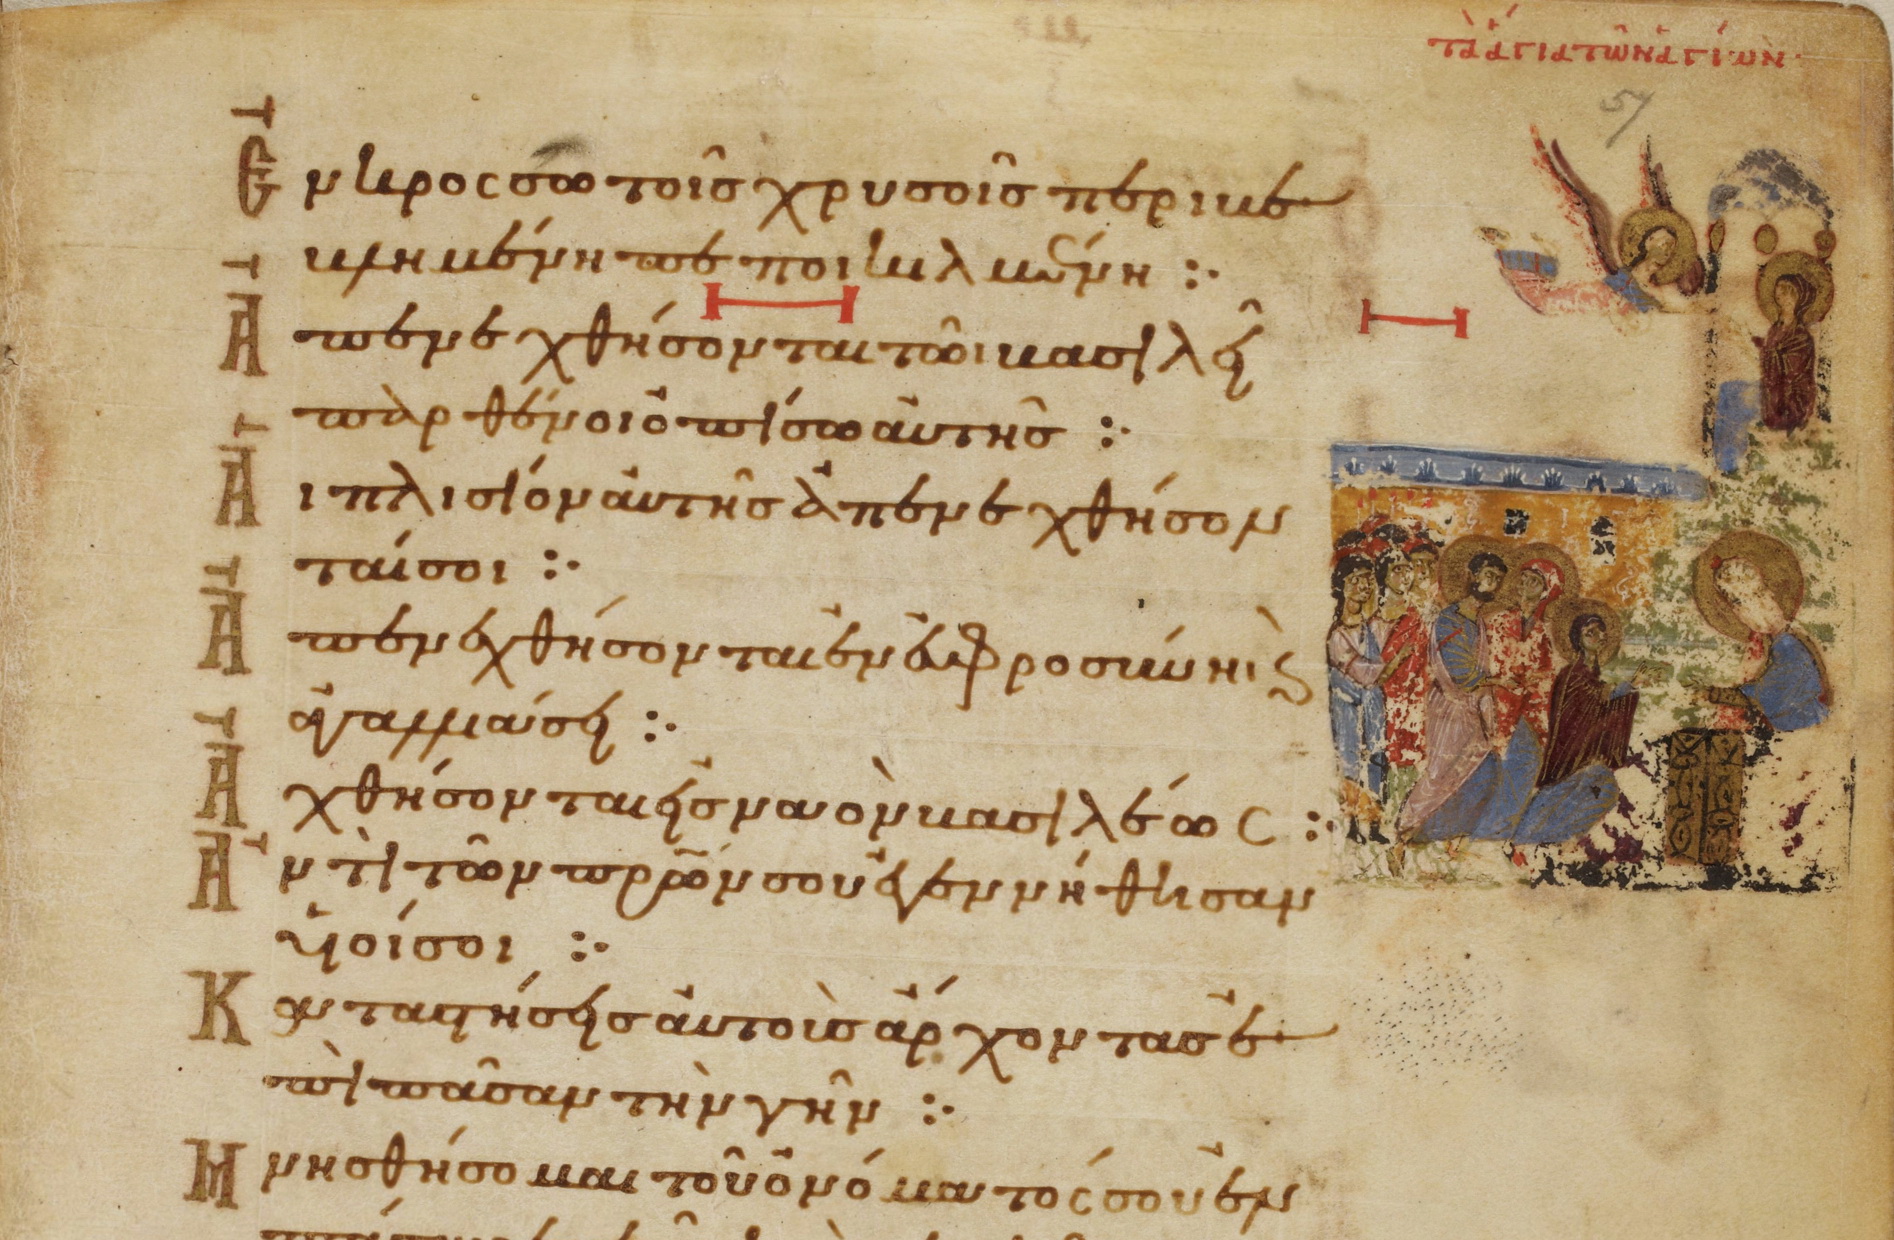 τὰ ἅγια τῶν ἁγίων
57
Ἐν κροσσωτοῖς χρυσοῖς περιβε
βλημένη πεποικιλμένη :·
Ἀπενεχθήσονται τῶι βασιλεῖ
παρθένοι ὀπίσω αὐτῆς :·
Αἱ πλισίον αὐτῆς ἀπενεχθήσον
ταί σοι :·
Ἀπενεχθήσονται ἐν εὐφροσύνηι καὶ
ἀγαλλιάσει :·
Ἀχθήσονται εἰς ναὸν βασιλέως :·
Ἀντὶ τῶν πρων σου ἐγεννήθισαν
υἱοί σοι :·
Καταστήσεις αὐτοὺς ἄρχοντας ἐ
πὶ πᾶσαν τὴν γῆν :·
Μνησθήσομαι τοῦ ὀνόματος σου ἐν